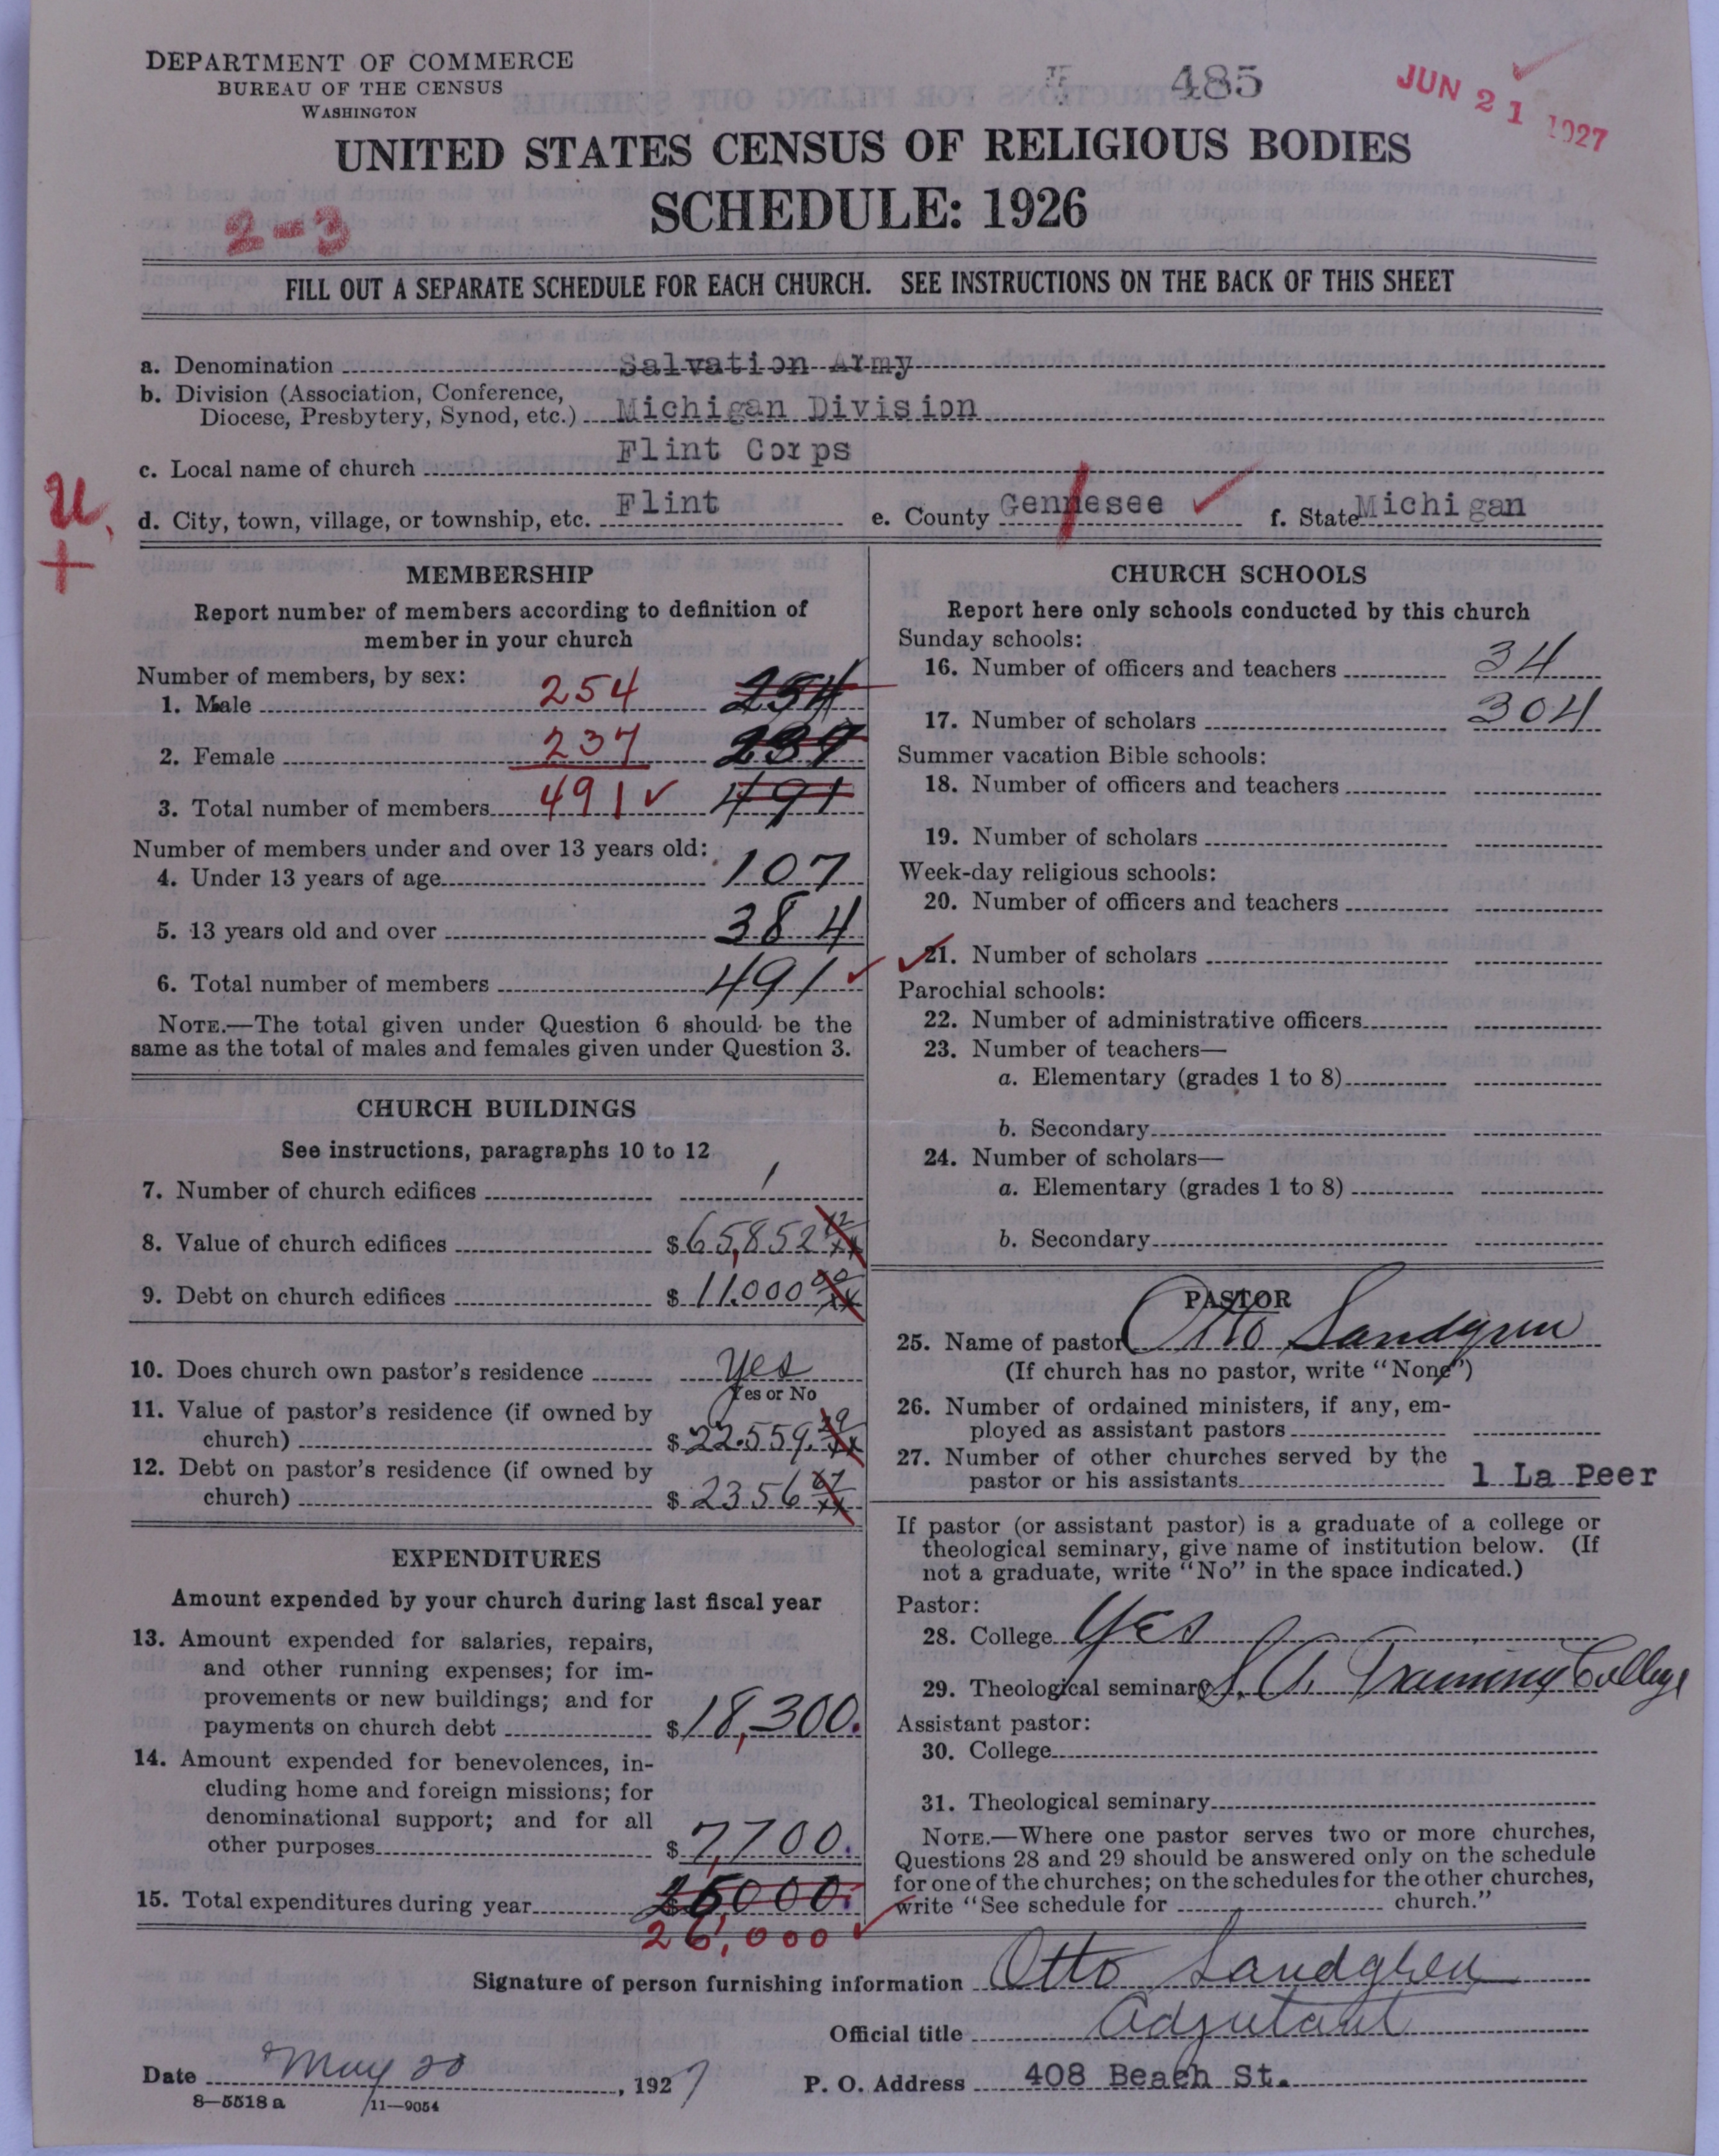 DEPARTMENT OF COMMERCE
BUREAU OF THE CENSUS
WASHINGTON
485
JUN 21 1927
UNITED STATES CENSUS OF RELIGIOUS BODIES
SCHEDULE: 1926
2-3
FILL OUT A SEPARATE SCHEDULE FOR EACH CHURCH. SEE INSTRUCTIONS ON THE BACK OF THIS SHEET
a. Denomination Salvation Army
b. Division (Association, Conference,
Diocese, Presbytery, Synod, etc.) Michigan Division
c. Local name of church Flint Corps
d. City, town, village, or township, etc. Flint e. County Gennesee f. State Michigan
U
+
MEMBERSHIP
Report number of members according to definition of
member in your church
Number of members, by sex:
1. Male 254 254
2. Female 237 237
3. Total number of members 491 491
Number of members under and over 13 years old:
4. Under 13 years of age 107
5. 13 years old and over 384
6. Total number of members 491
NOTE.—The total given under Question 6 should be the
same as the total of males and females given under Question 3.
CHURCH BUILDINGS
See instructions, paragraphs 10 to 12
7. Number of church edifices 1
8. Value of church edifices $65,852 12
9. Debt on church edifices $11.000 00
10. Does church own pastor's residence Yes
Yes or No
11. Value of pastor's residence (if owned by
church) $22.559.
12. Debt on pastor's residence (if owned by
church) $2356 67
EXPENDITURES
Amount expended by your church during last fiscal year
13. Amount expended for salaries, repairs,
and other running expenses; for im-
provements or new buildings; and for
payments on church debt $18,300.
14. Amount expended for benevolences, in-
cluding home and foreign missions; for
denominational support; and for all
other purposes $7,700.
15. Total expenditures during year $26000.
26,000
CHURCH SCHOOLS
Report here only schools conducted by this church
Sunday schools:
16. Number of officers and teachers 34
17. Number of scholars 304
Summer vacation Bible schools:
18. Number of officers and teachers
19. Number of scholars
Week-day religious schools:
20. Number of officers and teachers
21. Number of scholars
Parochial schools:
22. Number of administrative officers
23. Number of teachers—
a. Elementary (grades 1 to 8)
b. Secondary
24. Number of scholars—
a. Elementary (grades 1 to 8)
b. Secondary
PASTOR
25. Name of pastor Otto Sandgren
(If church has no pastor, write "None")
26. Number of ordained ministers, if any, em-
ployed as assistant pastors
27. Number of other churches served by the
pastor or his assistants 1 La Peer
If pastor (or assistant pastor) is a graduate of a college or
theological seminary, give name of institution below. (If
not a graduate, write "No" in the space indicated.)
Pastor:
28. College Yes
29. Theological seminary S. A. Training College
Assistant pastor:
30. College
31. Theological seminary
NOTE.—Where one pastor serves two or more churches,
Questions 28 and 29 should be answered only on the schedule
for one of the churches; on the schedules for the other churches,
write "See schedule for church."
Signature of person furnishing information Otto Sandgren
Official title Adjutant
Date May 20, 1927 P. O. Address 408 Beach St.
8—5518 a 11—9054